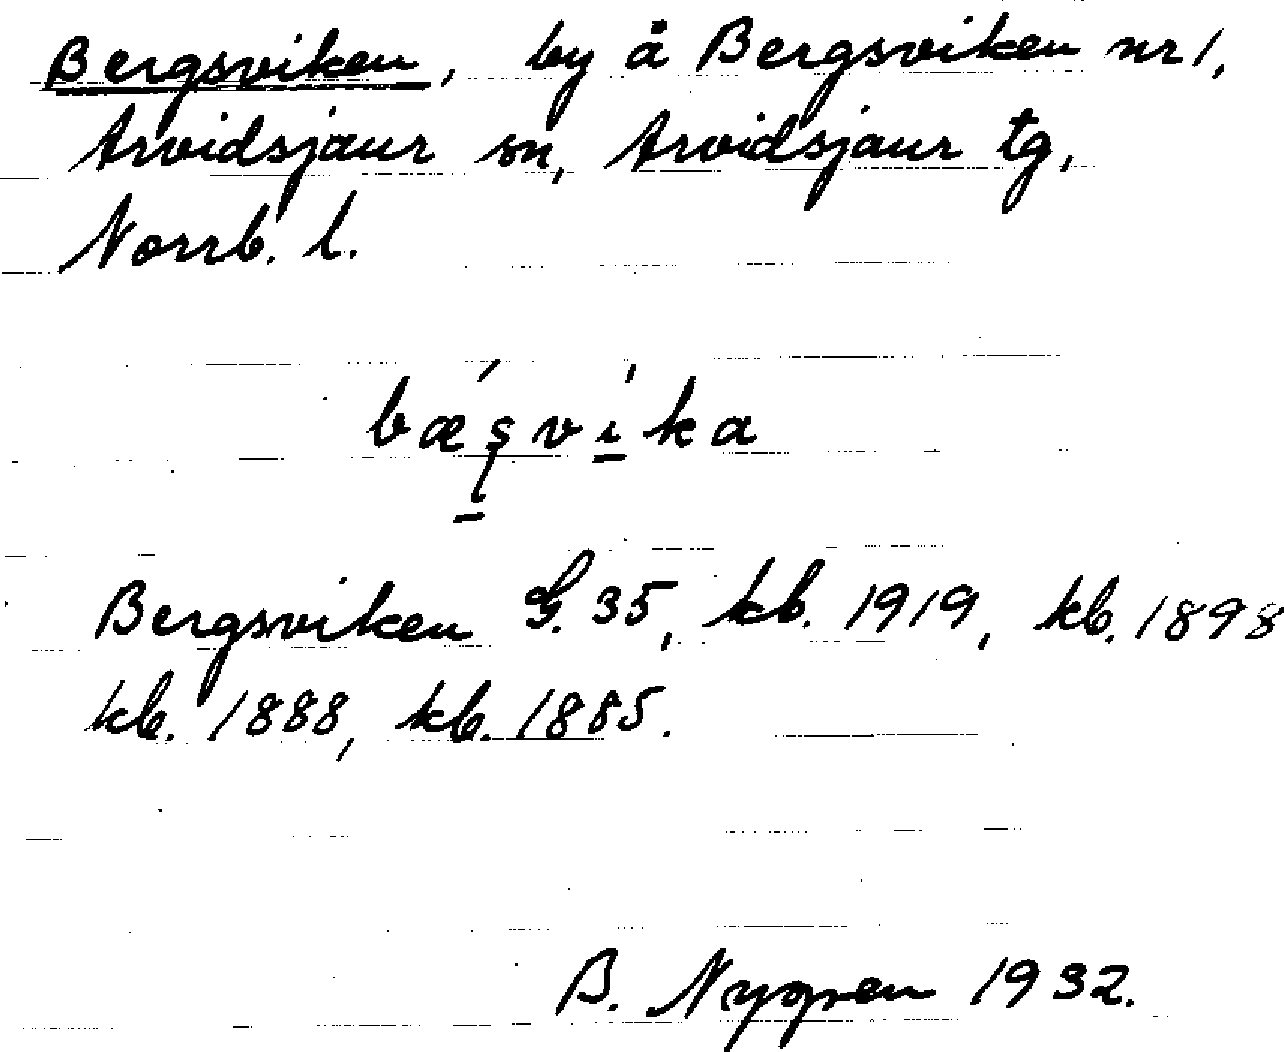 Bergsviken, by å Bergsviken nr 1,
Arvidsjaur sn, Arvidsjaur tg,
Norrb. l.
bǽʂví̱ka
Bergsviken G. 35, kb. 1919, kb. 1898
kb. 1888, kb. 1885.
B. Nygren 1932.